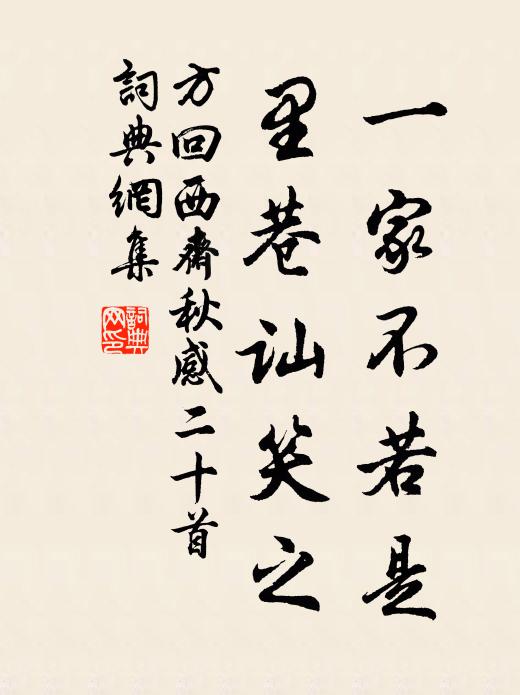 一家不若是
里巷讪笑之
方回西齋秋感二十首
詞典網集
詞典
网印